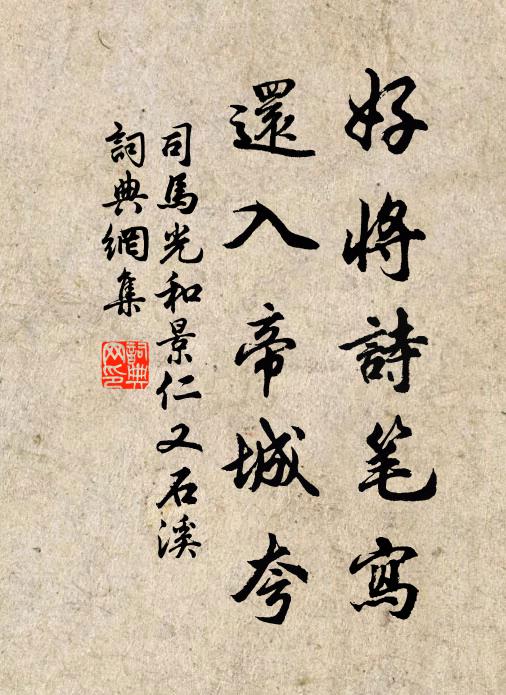 好将詩笔寫
還入帝城夸
司馬光和景仁又石溪
詞典網集
詞典
网印